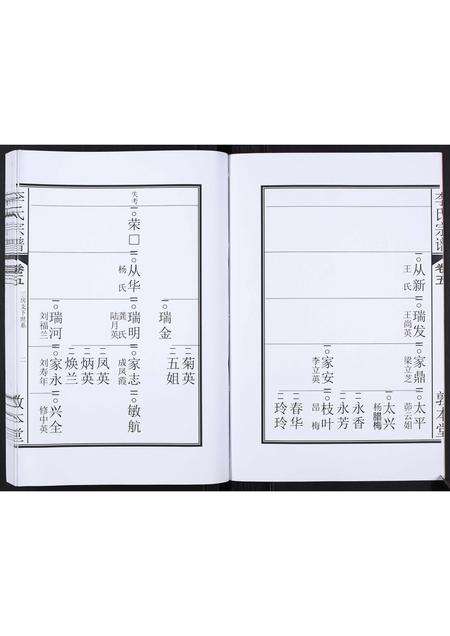 李氏宗谱
卷五
敦本堂
从新
王氏
瑞发
王尚英
家鼎
梁立芝
太平
茆云姐
太兴
杨腊梅
永香
永芳
家安
李立英
枝叶
吕梅
春华
玲玲
失考
荣□
从华
杨氏
瑞金
瑞明
龚氏
陆月英
家志
成凤霞
敏航
菊英
五姐
凤英
炳英
焕兰
瑞河
刘福兰
家永
刘寿年
兴全
修中英
李氏宗谱
卷五
二
敦本堂